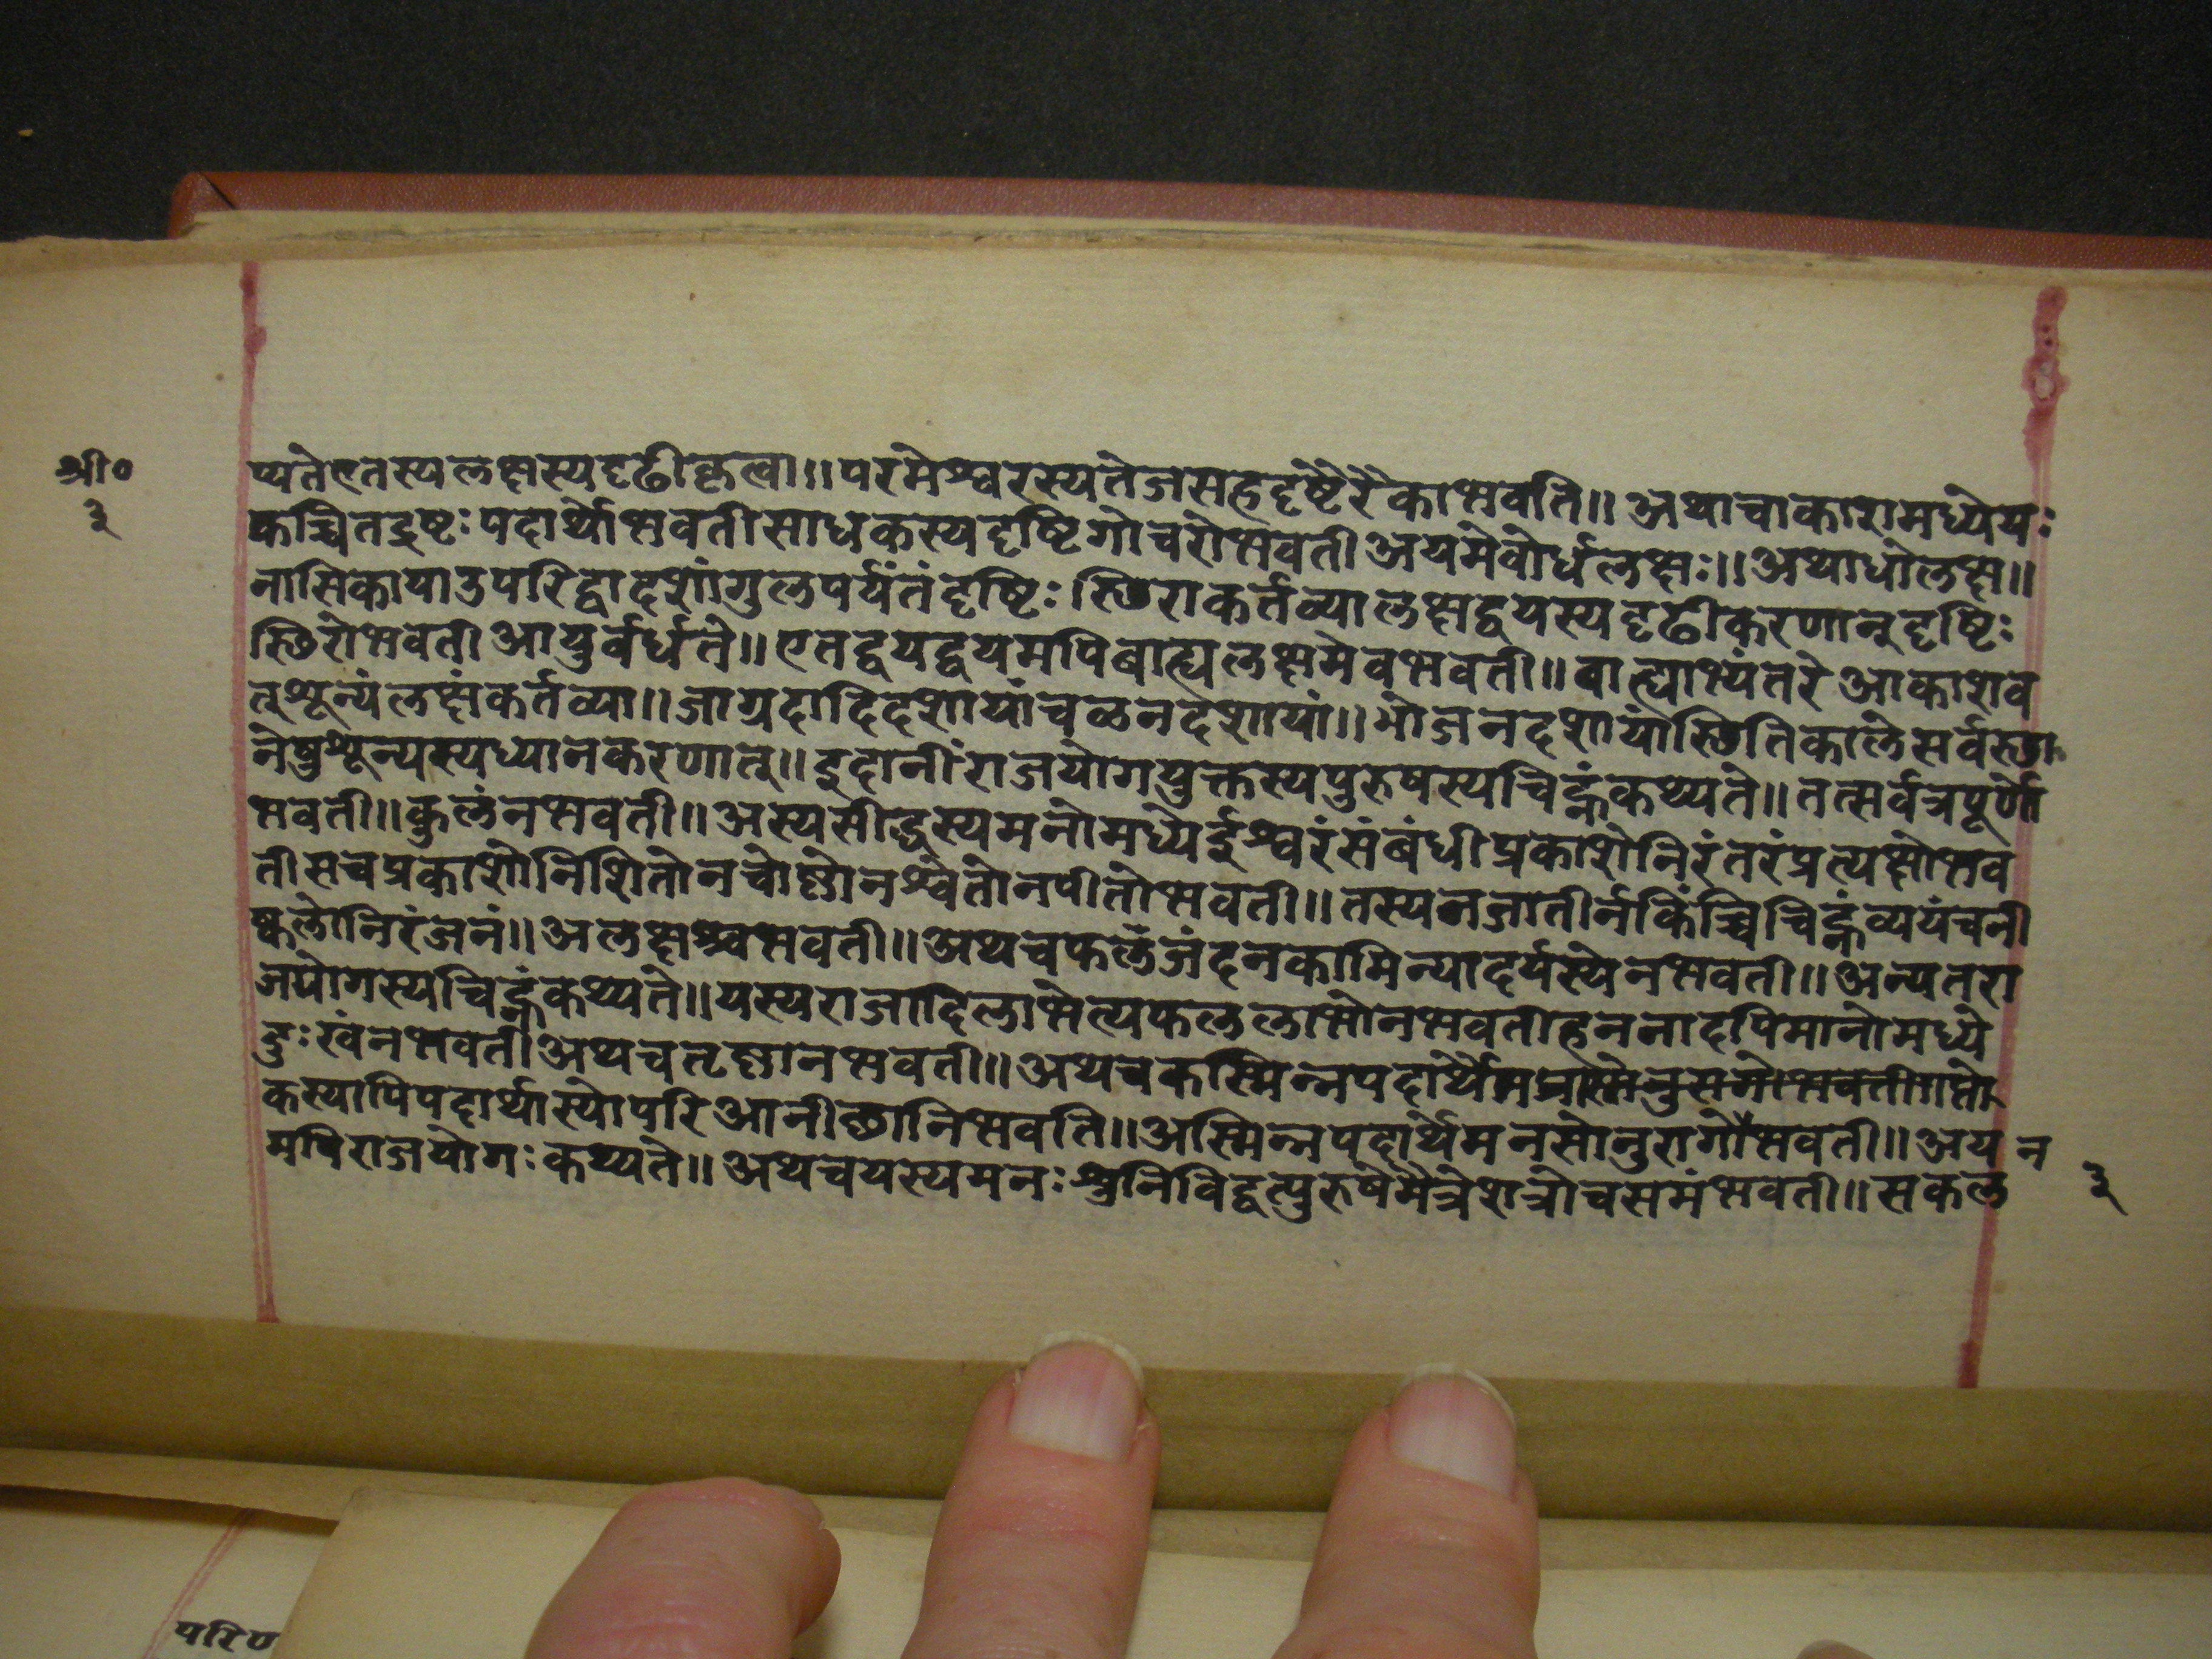 श्री०
३
प्यतेएतस्यलक्षस्यदृढीकृत्वा॥परमेश्वरस्यतेजसहदृष्टेरैकाभवति॥अथाचाकाशमध्येयः
कच्चितदृष्टःपदार्थोभवतीसाधकस्यदृष्टिगोचरोभवतीअयमेवोर्धलक्षः॥अथाधोलक्ष॥
नासिकायाउपरिद्वादशांगुलपर्यंतंदृष्टिःस्छिराकर्तव्यालक्षद्वयस्यदृढीकरणानुदृष्टिः
स्छिरोभवतीआयुर्वर्धते॥एतद्वयद्वयमपिबाह्यलक्षमेवभवती॥बाह्याभ्यंतरेआकाशव
त्शून्यंलक्षंकर्तव्या॥जाग्रदादिदशायांचळनदशायां॥भोजनदशायांस्छितिकालेसर्वस्छा
नेषुशून्यस्यध्यानकरणात्॥इदानींराजयोगयुक्तस्यपुरुषस्यचिह्नंकथ्यते॥तत्सर्वत्रपूर्णो
भवती॥कुलंनभवती॥अस्यसीद्धस्यमनोमध्येईश्वरंसंबंधीप्रकाशोनिरंतरंप्रत्यक्षोभव
तीसचप्रकाशोनिशितोनचोष्णोनश्वेतोनपीतोभवती॥तस्यनजातीर्नकिंच्चिचिह्नंव्ययंचनी
ष्कलोनिरंजनं॥अलक्षश्चभवती॥अथचफलंजंदनकामिन्यादर्यस्येनभवती॥अन्यतरा
जयोगस्यचिह्नंकथ्यते॥यस्यराजादिलाभेत्यफललाभोनभवतीहननादपिमानोमध्ये
दुःखंनभवतीअथचतृष्णानभवती॥अथचकस्मिन्नपदार्थै
कस्यापिपदार्थास्योपरिआनीछानिभवति॥अस्मिन्नपदार्थेमनसोनुरागोभवती॥अय न
मपिराजयोगःकथ्यते॥अथचयस्यमनःश्रुनिविद्वत्पुरुषेमैत्रेशत्रौचसमंभवती॥सकल
३
परिप